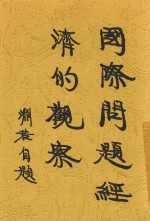 國際問題經
濟的觀察
淵若自題